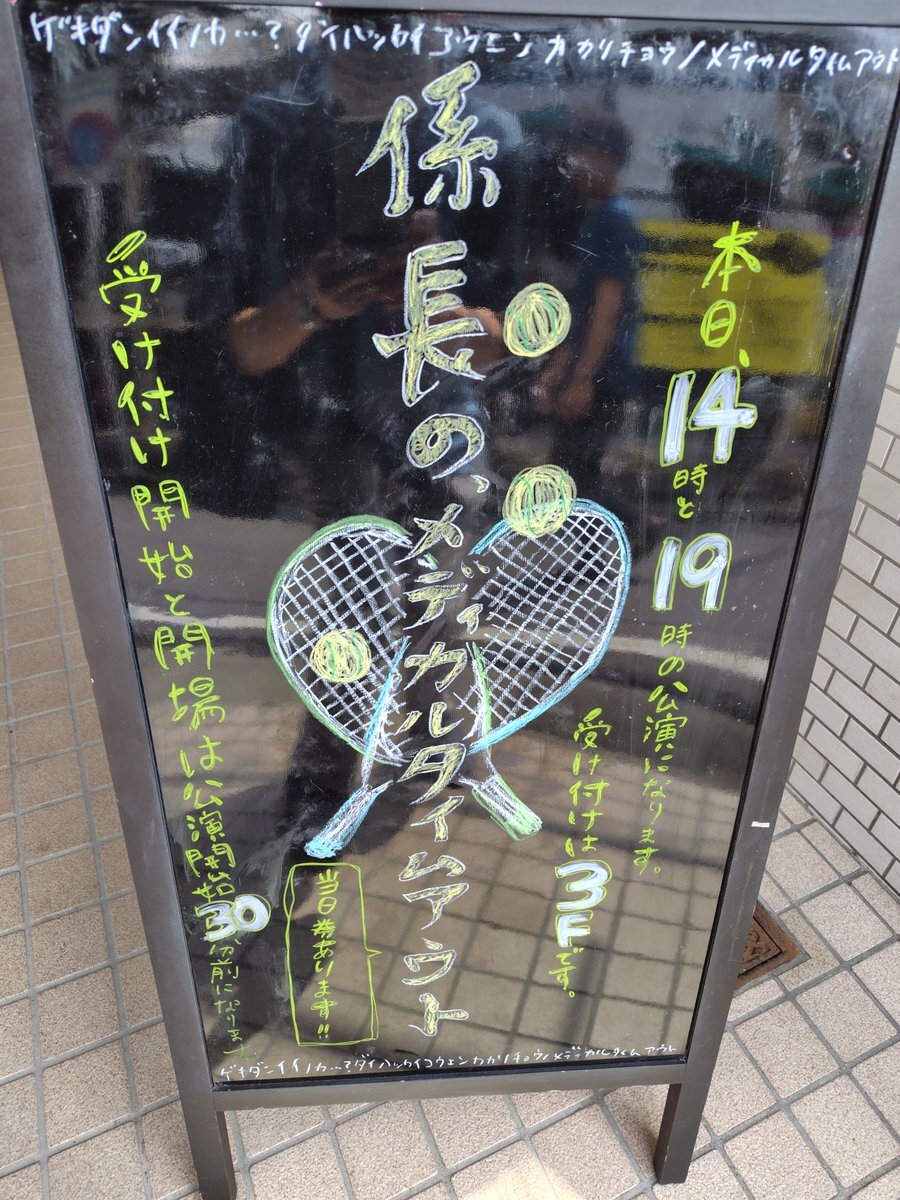 ゲキダンイイノカ…?ダイハッカイコウエン カカリチョウノメディカルタイムアウト
本日、14時と19時の公演になります。
受け付けは3Fです。
係長の、メディカルタイムアウト
当日券あります!!
受け付け開始と開場は公演開始30分前になります
ゲキダンイイノカ…?ダイハッカイコウエンカカリチョウノメディカルタイムアウト